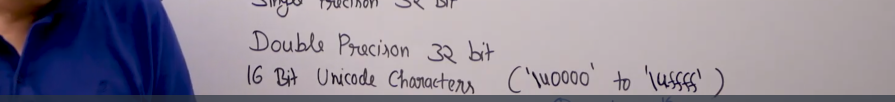 Single Precision 32 bit
Double Precison 32 bit
16 Bit Unicode Characters ('\u0000' to '\uffff')